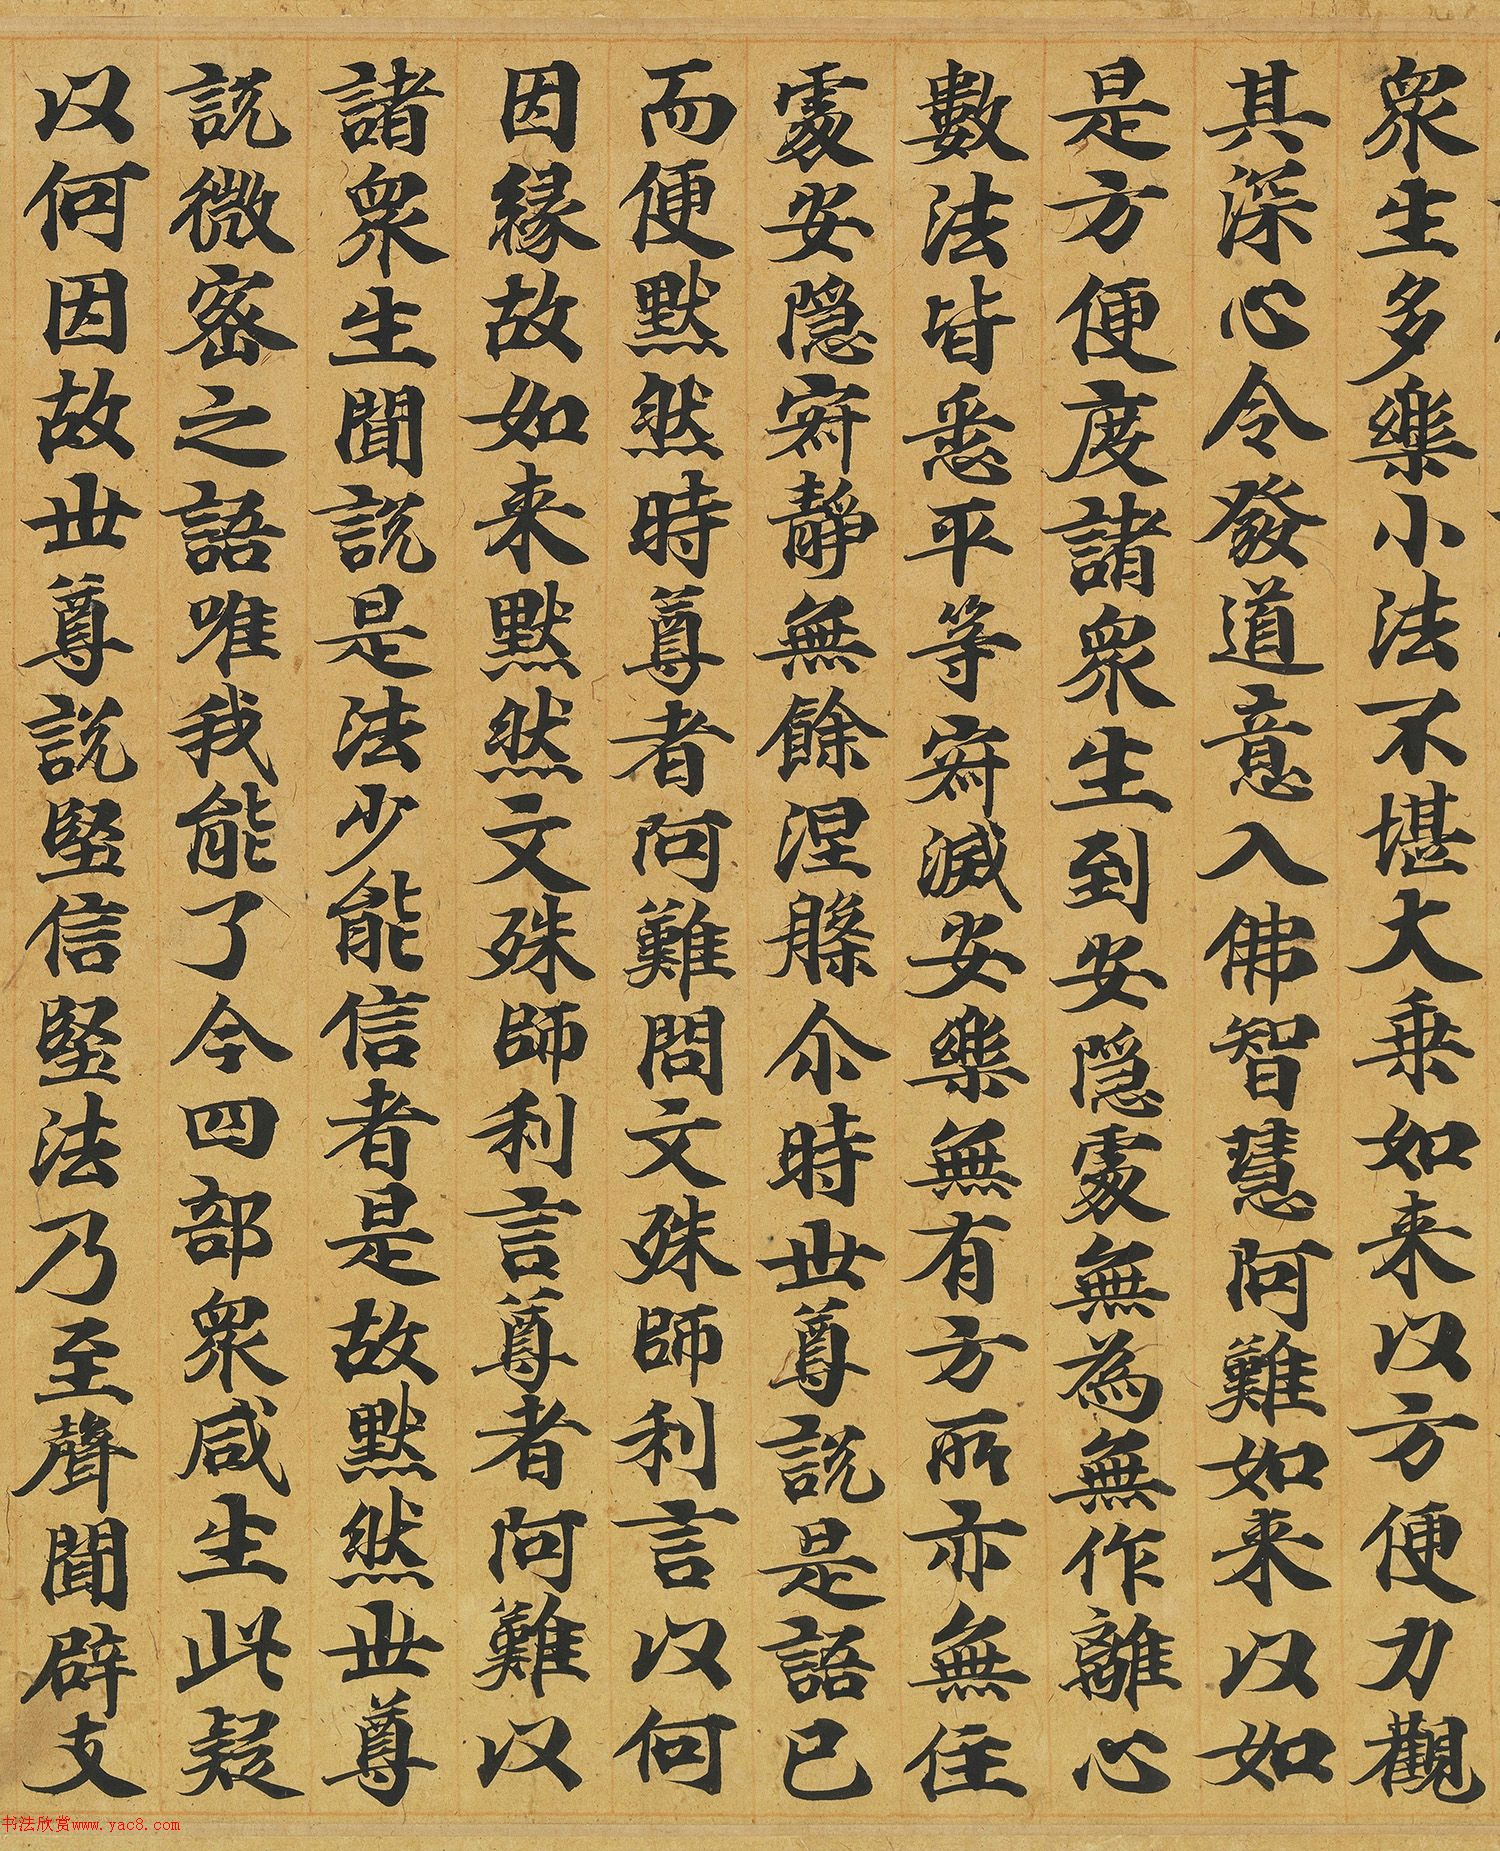 衆生多樂小法不堪大乗如来以方便力觀
其深心令發道意入佛智慧阿難如来以如
是方便度諸衆生到安隠處無為無作離心
數法皆悉平等寂滅安樂無有方所亦無住
處安隠寂靜無餘涅槃尒時世尊説是語已
而便默然時尊者阿難問文殊師利言以何
因縁故如来默然文殊師利言尊者阿難以
諸衆生聞説是法少能信者是故默然世尊
説微密之語唯我能了今四部衆咸生此疑
以何因故世尊説堅信堅法乃至聲聞辟支
书法欣赏www.yac8.com